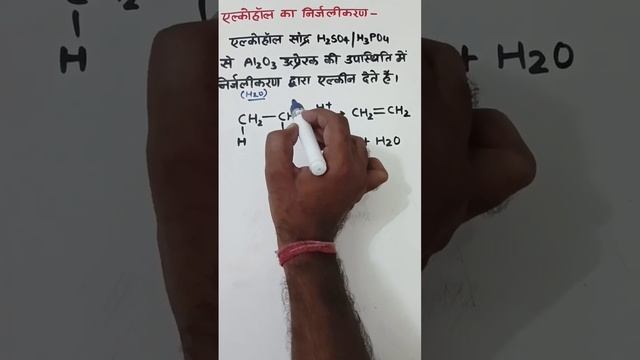 एल्कोहॉल का निर्जलीकरण –
एल्कोहॉल सांद्र H₂SO₄/H₃PO₄
से Al₂O₃ उत्प्रेरक की उपस्थिति में
निर्जलीकरण द्वारा एल्कीन देते है।
(H₂O)
CH₂ – CH H⁺ CH₂=CH₂
H + H₂O
H + H₂O